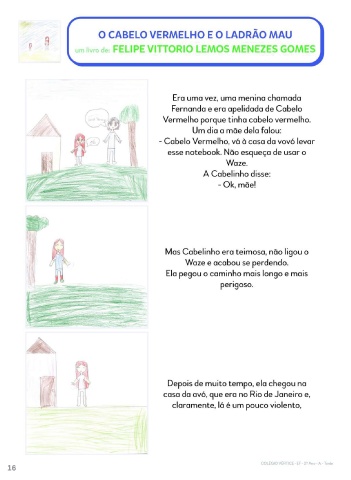 O CABELO VERMELHO E O LADRÃO MAU
um livro de: FELIPE VITTORIO LEMOS MENEZES GOMES
Era uma vez, uma menina chamada
Fernanda e era apelidada de Cabelo
Vermelho porque tinha cabelo vermelho.
Um dia a mãe dela falou:
- Cabelo Vermelho, vá à casa da vovó levar
esse notebook. Não esqueça de usar o
Waze.
A Cabelinho disse:
- Ok, mãe!
Mas Cabelinho era teimosa, não ligou o
Waze e acabou se perdendo.
Ela pegou o caminho mais longo e mais
perigoso.
Depois de muito tempo, ela chegou na
casa da avó, que era no Rio de Janeiro e,
claramente, lá é um pouco violento,
16